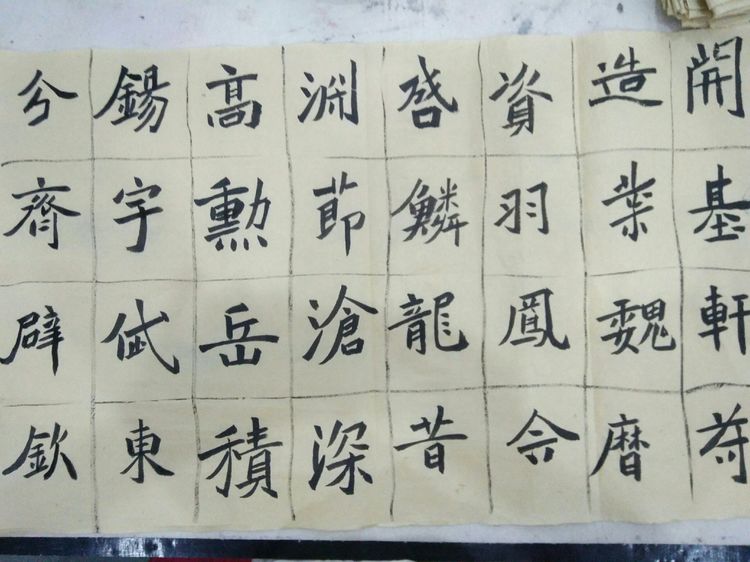 開基軒苻
造業魏暦
資羽鳳今
啓鱗龍昔
淵節滄深
高勲岳積
錫宇岱東
兮齊辟欽